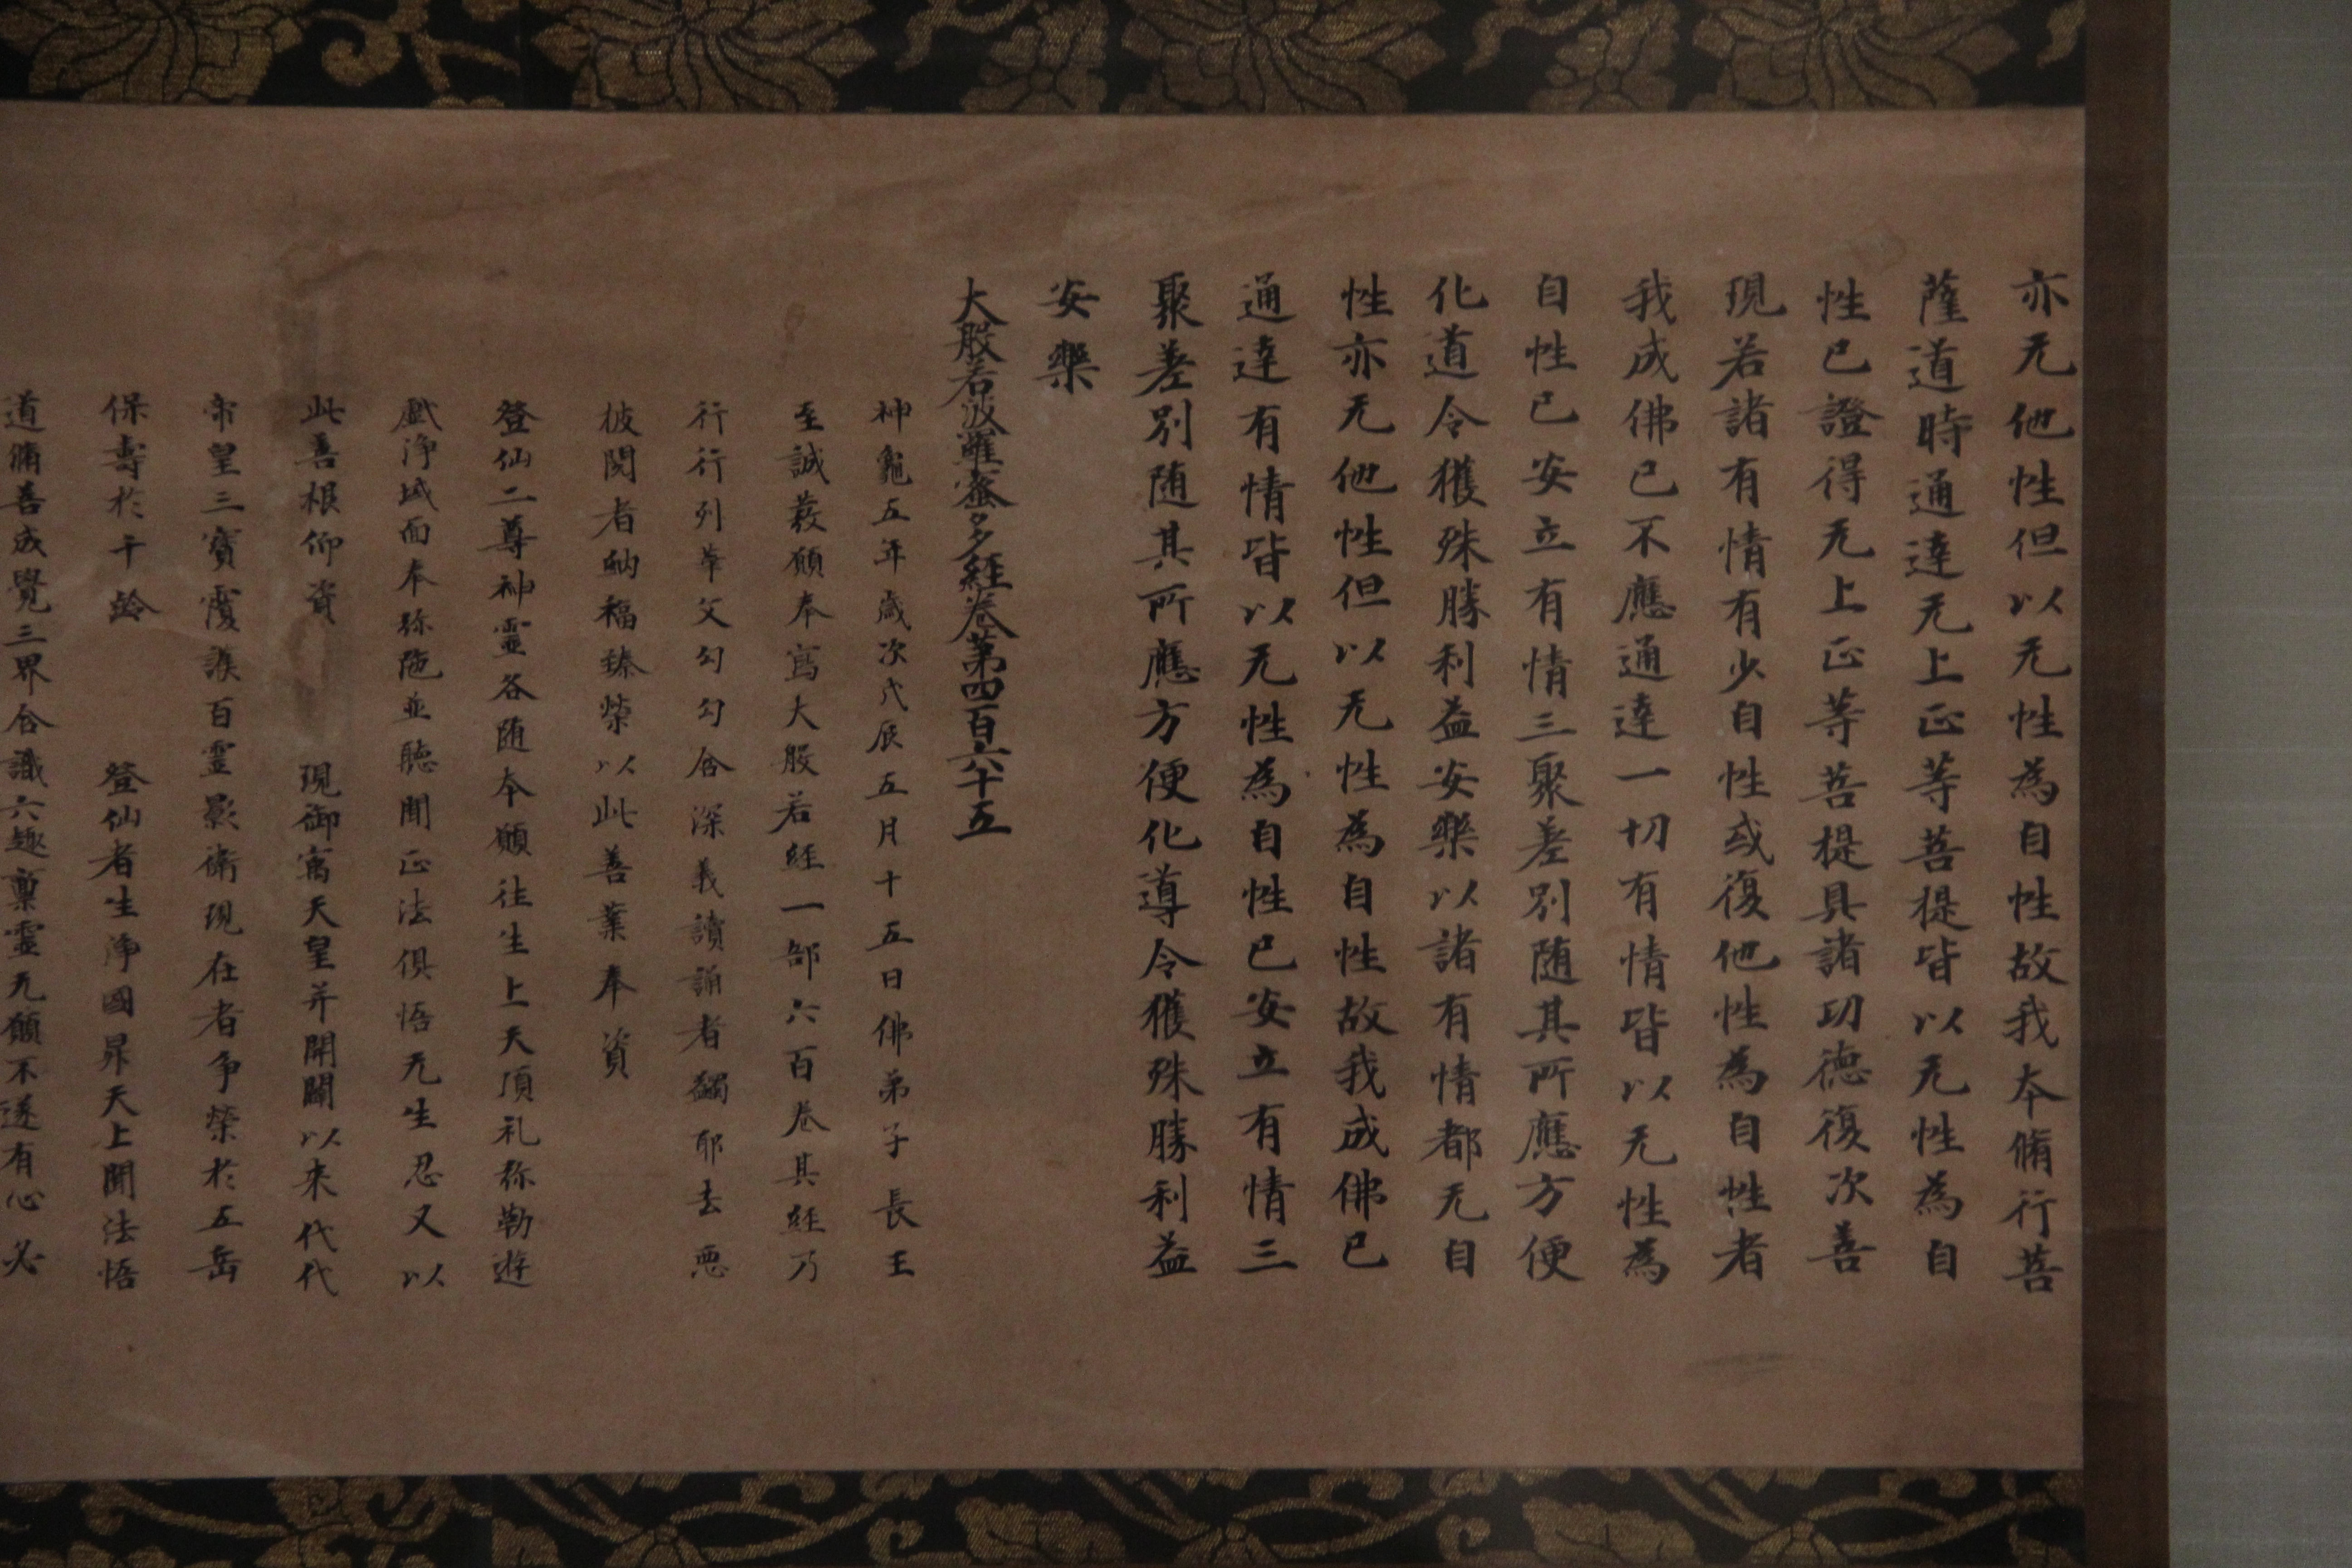 亦无他性但以无性為自性故我本脩行菩
薩道時通達无上正等菩提皆以无性為自
性已證得无上正等菩提具諸功德復次善
現若諸有情有少自性或復他性為自性者
我成佛已不應通達一切有情皆以无性為
自性已安立有情三聚差別随其所應方便
化道令獲殊勝利益安樂以諸有情都无自
性亦无他性但以无性為自性故我成佛已
通達有情皆以无性為自性已安立有情三
聚差別随其所應方便化導令獲殊勝利益
安樂
大般若波羅蜜多經卷第四百六十五
神龜五年歲次戊辰五月十五日佛弟子長王
至誠發願奉寫大般若經一部六百卷其經乃
行行列華文勾勾含深義讀誦者蠲耶去惡
披閱者納福臻榮以此善業奉資
登仙二尊神靈各随本願往生上天頂礼弥勒遊
戲淨域面奉弥陁並聽聞正法俱悟无生忍又以
此善根仰資 現御㝢天皇并開闢以来代代
帝皇三寶覆護百靈影衛現在者争榮於五岳
保壽於千齡 登仙者生淨國昇天上聞法悟
道脩善成覺三界含識六趣稟靈无願不遂有心必